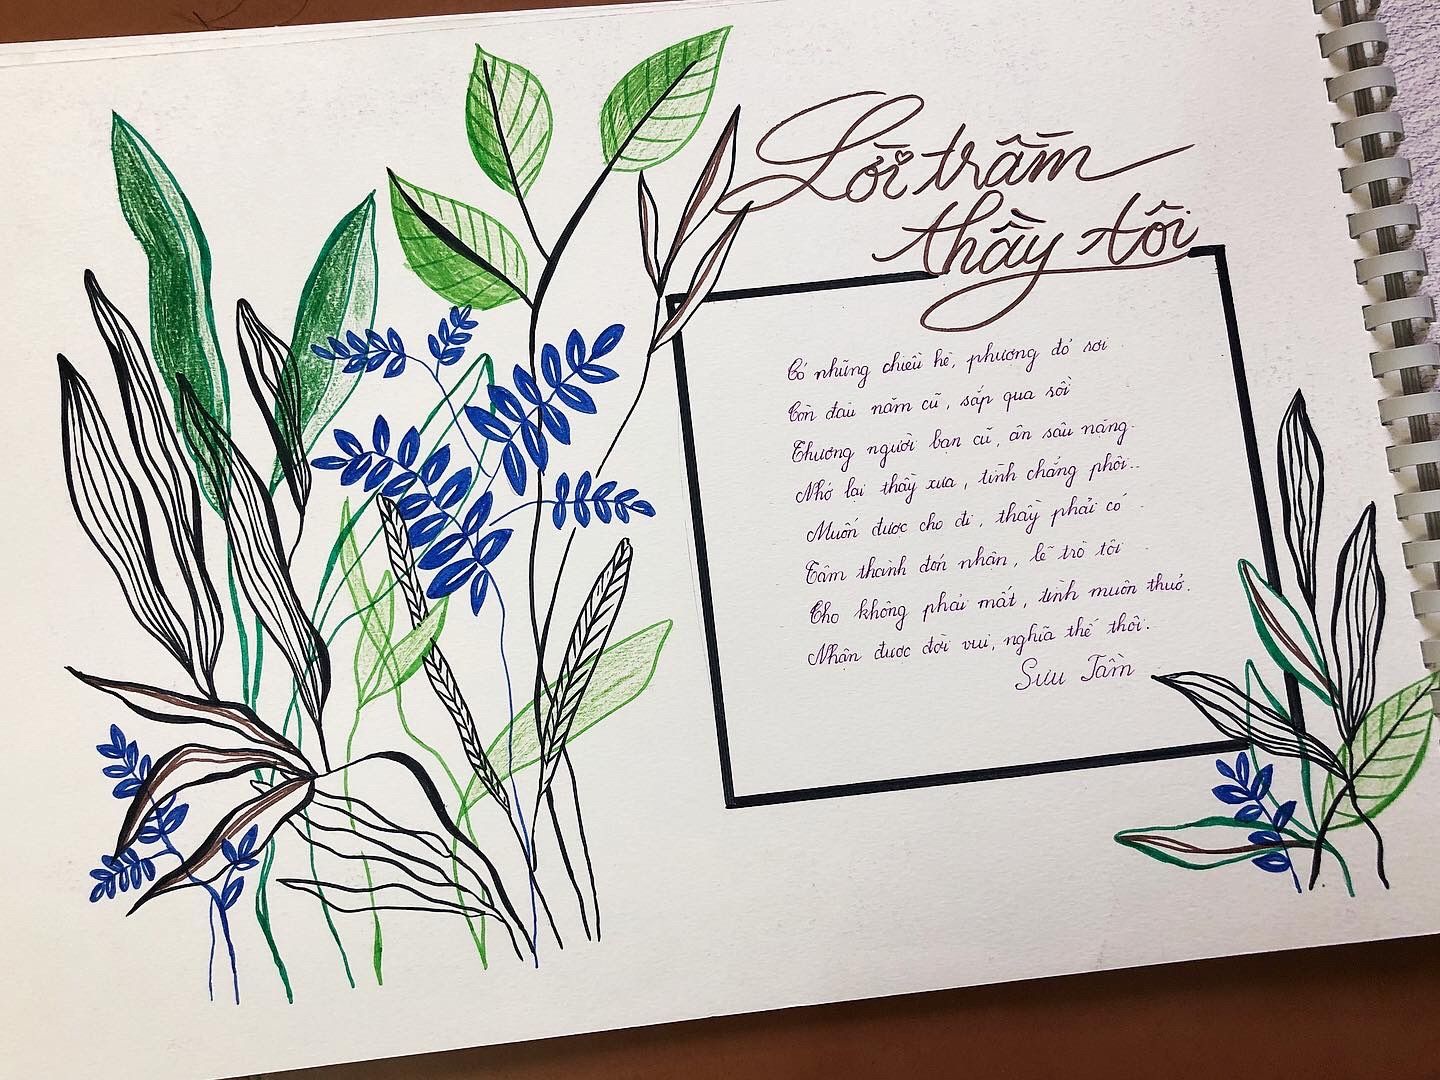 Lời trầm
thầy tôi
Có những chiều hè, phượng đỏ sơi
Còn đâu năm cũ, sắp qua sồi
Thương người bạn cũ, ân sâu nặng.
Nhớ lại thầy xưa, tình chẳng phôi..
Muốn được cho đi, thầy phải có
Tâm thành đón nhận, lẽ trò tôi
Cho không phải mất, tình muôn thuở.
Nhận được đời vui, nghĩa thế thôi.
Sưu Tầm